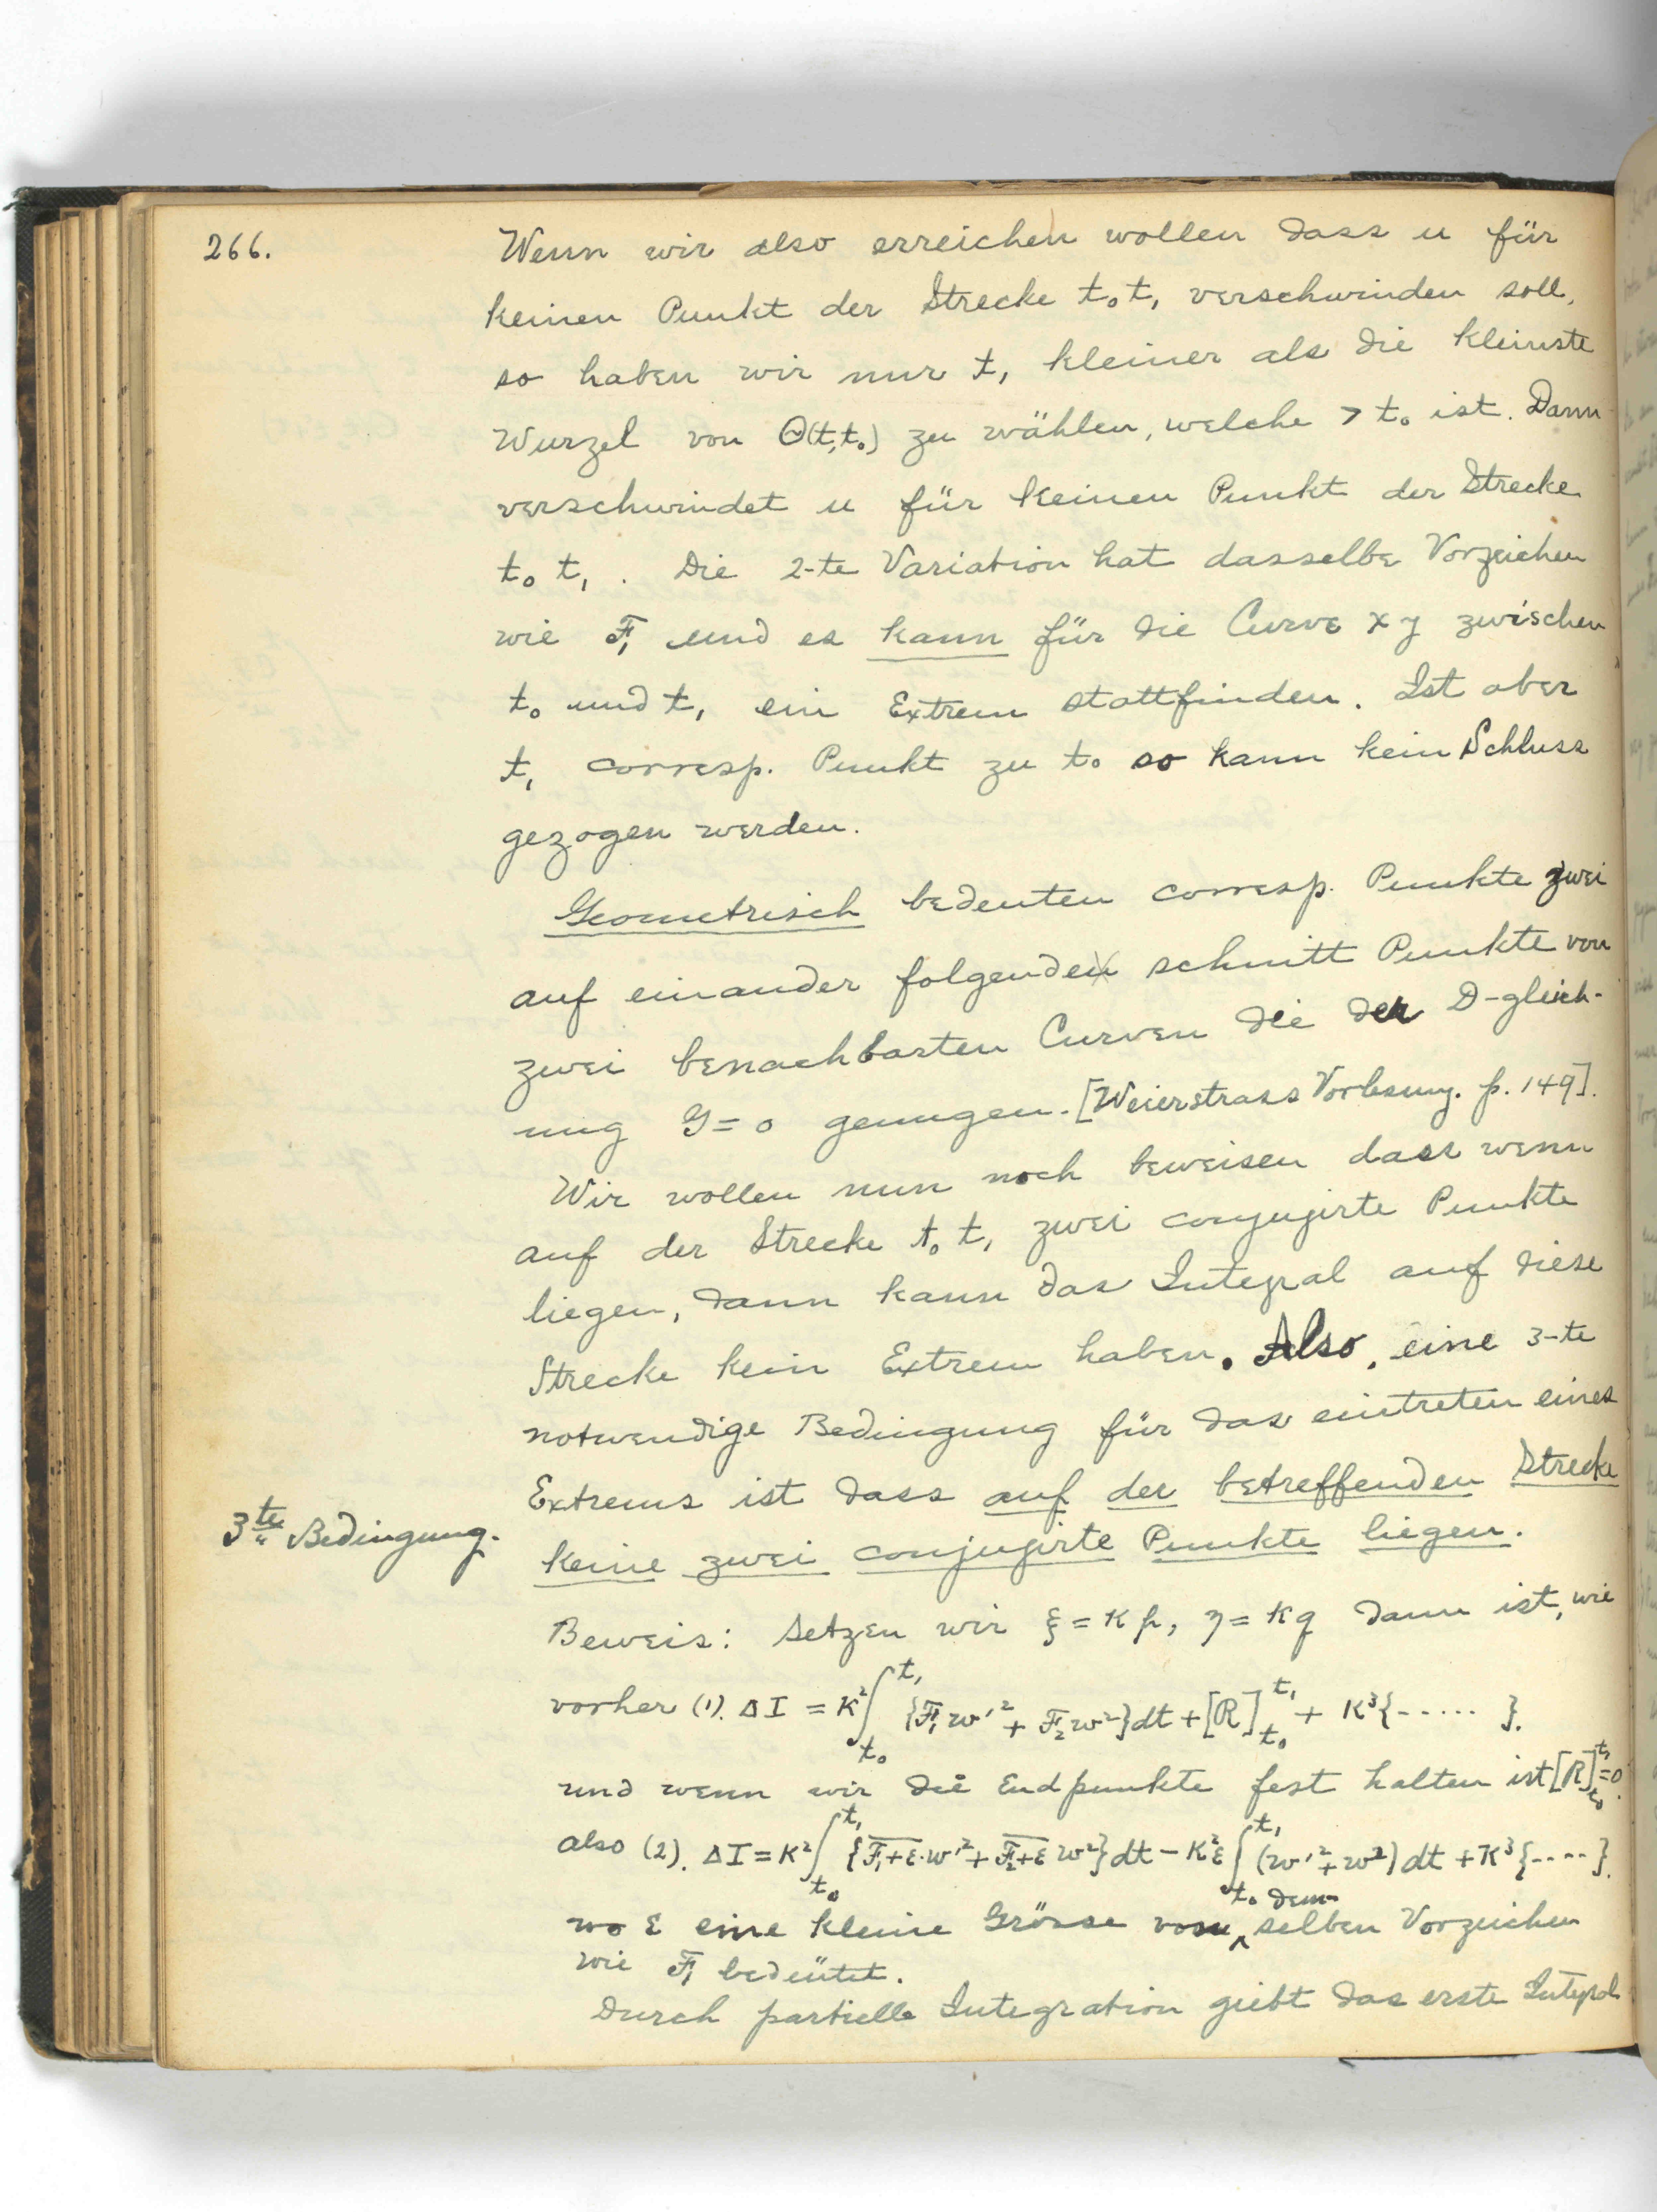 266.
Wenn wir also erreichen wollen dass u für
keinen Punkt der Strecke t₀t₁ verschwinden soll,
so haben wir nur t₁ kleiner als die kleinste
Wurzel von Θ(t,t₀) zu wählen, welche > t₀ ist. Dann
verschwindet u für keinen Punkt der Strecke
t₀ t₁. Die 2-te Variation hat dasselbe Vorzeichen
wie F₁ und es kann für die Curve x y zwischen
t₀ und t₁ ein Extrem stattfinden. Ist aber
t₁ corresp. Punkt zu t₀ so kann kein Schluss
gezogen werden.
Geometrisch bedeuten corresp. Punkte zwei
auf einander folgende schnitt Punkte von
zwei benachbarten Curven die der D-gleich-
ung G=0 genugen. [Weierstrass Vorlesung. p. 149].
Wir wollen nun noch beweisen dass wenn
auf der Strecke t₀ t₁ zwei conjugirte Punkte
liegen, dann kann das Integral auf diese
Strecke kein Extrem haben. Also, eine 3-te
notwendige Bedingung für das eintreten eines
Extrems ist dass auf der betreffenden Strecke
3te Bedingung.
keine zwei conjugirte Punkte liegen.
Beweis: Setzen wir ξ = κp, η = κq dann ist, wie
vorher (1). ΔI = κ²∫_{t₀}^{t₁} {F₁w'² + F₂w²}dt + [R]_{t₀}^{t₁} + κ³{----- }.
und wenn wir die Endpunkte fest halten ist [R]_{t₀}^{t₁}=0.
also (2). ΔI = κ²∫_{t₀}^{t₁} {F̅₁+ε·w'² + F̅₂+ε w²}dt − κ²ε∫_{t₀}^{t₁} (w'²+w²)dt + κ³{----}.
wo ε eine kleine Grösse von demselben Vorzeichen
wie F₁ bedeütet.
Durch partielle Integration giebt das erste Integral